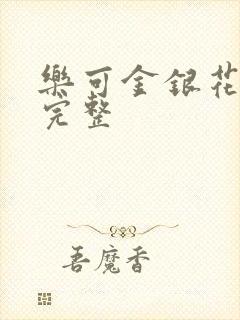 樂可金銀花
完整
吾魔香